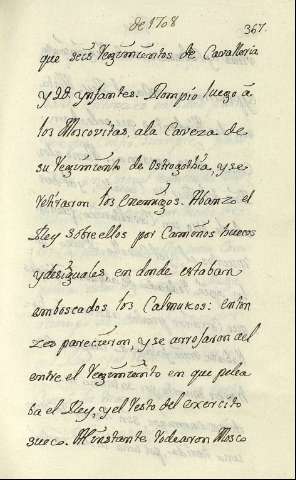 de 1708
367.
que seis regimientos de Cavalleria
y D. D. ynfantes. Rompio luego a
los Moscovitas, ala Caveza de
su regimiento de ostrogothia, y se
retiraron los enemigos. Abanzo el
Rey sobre ellos por Caminos huecos
y desiguales en donde estaban
emboscados los Calmukos: enton
zes parecieron, y se arrojaron del
entre el regimiento en que pelea
ba el Rey, y el resto del exercito
sueco. Al instante rodearon Mosco